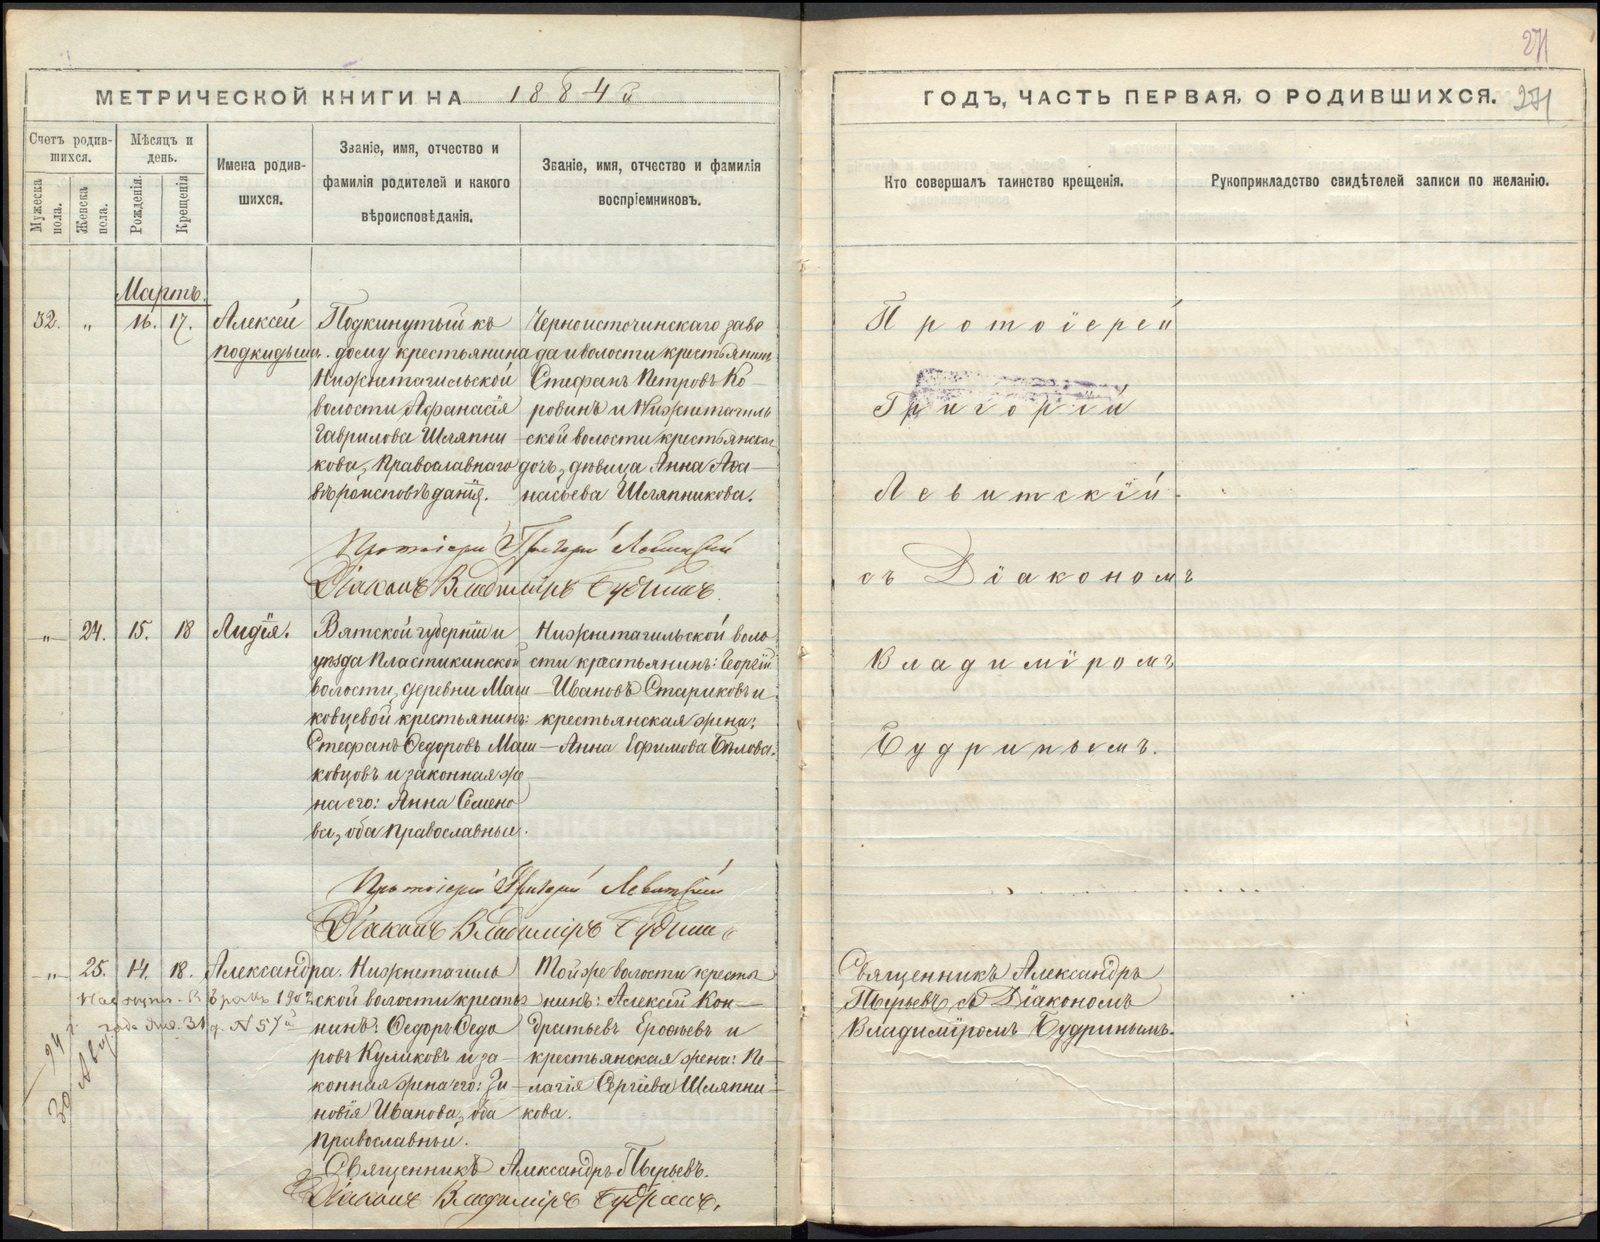 271
МЕТРИЧЕСКОЙ КНИГИ НА 1884
ГОДЪ, ЧАСТЬ ПЕРВАЯ, О РОДИВШИХСЯ. 271
Счетъ родив-
шихся.
Мужеска
пола.
Женска
пола.
Мѣсяцъ и
день.
Рожденія.
Крещенія
Имена родив-
шихся.
Званіе, имя, отчество и
фамилія родителей и какого
вѣроисповѣданія.
Званіе, имя, отчество и фамилія
воспріемниковъ.
Кто совершалъ таинство крещенія.
Рукоприкладство свидѣтелей записи по желанію.
Мартъ.
32. „ 16. 17. Алексѣй
подкидышъ.
Подкинутый къ
дому крестьянина
Нижнетагильской
волости Афанасія
Гаврилова Шляпни
кова, Православнаго
вѣроисповѣданія.
Черноисточинскаго заво
да и волости крестьянинъ
Стефанъ Петровъ Ко-
ровинъ и Нижнетагиль
ской волости крестьянская
дочь, дѣвица Анна Афа-
насьева Шляпникова.
Протоіерей Григорій Левитскій
Діаконъ Владиміръ Будринъ.
Протоіерей
Григорій
Левитскій
съ Діакономъ
Владиміромъ
Будринымъ.
„ 24. 15. 18 Лидія.
Вятской губерніи и
уѣзда Пластикинской
волости, деревни Маш-
ковцевой крестьянинъ:
Стефанъ Ѳедоровъ Маш-
ковцовъ и законная же
на его: Анна Семено
ва, оба православные.
Нижнетагильской воло
сти крестьянинъ: Георгій
Ивановъ Стариковъ и
крестьянская жена:
Анна Ефимова Бѣлова.
Протоіерей Григорій Левитскій
Діаконъ Владиміръ Будринъ
„ 25. 14. 18. Александра.
1902
года Янв. 31 д. N 57
30 Авг
Нижнетагиль
ской волости кресть
нинъ: Ѳедоръ Ѳедо
ровъ Куликовъ и за-
конная жена его: Зи
новія Иванова, оба
православный.
Той же волости кресть
нинъ: Алексій Кон-
дратьевъ Ерофѣевъ и
крестьянская жена: Пе-
лагія Сергіева Шляпни
кова.
Священникъ Александръ Пырьевъ.
Діаконъ Владиміръ Будринъ.
Священникъ Александръ
Пырьевъ съ Діакономъ
Владиміромъ Будринымъ.